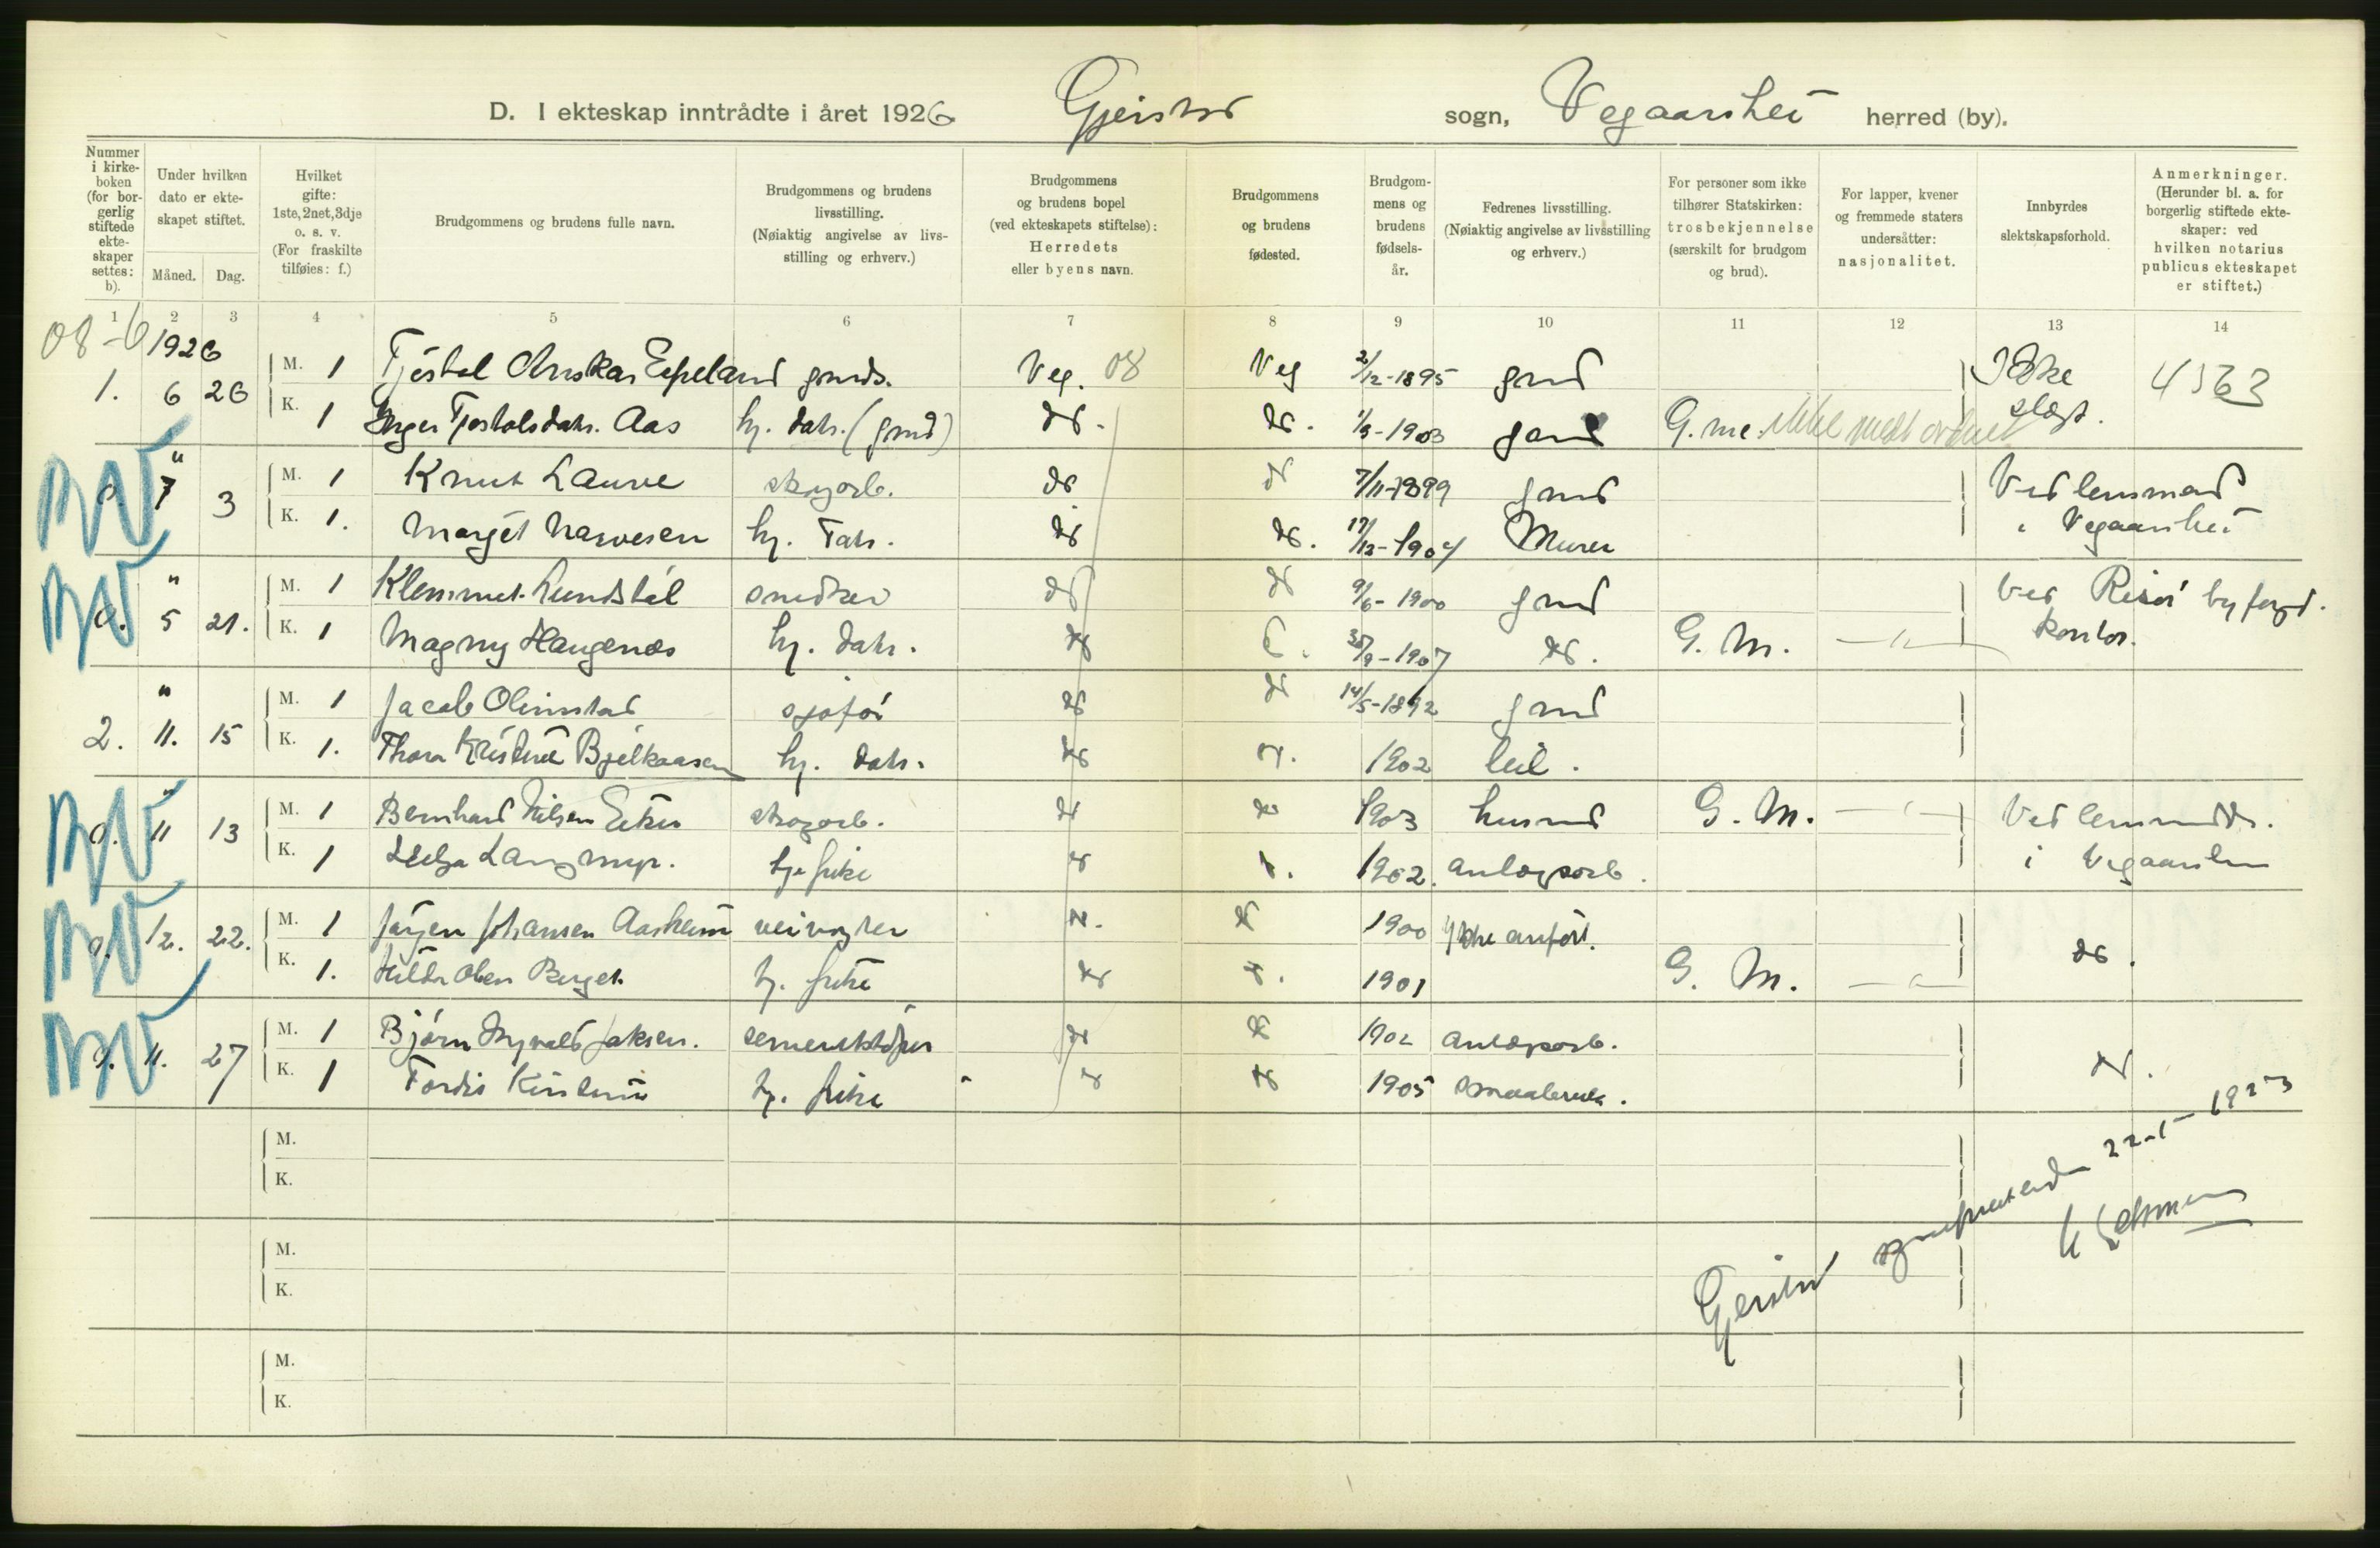 D. I ekteskap inntrådte i året 1926 Gjerstad sogn, Vegaarshei herred (by).
Nummer i kirke-boken (for bor-gerlig stiftede ekte-skaper settes: b).
Under hvilken dato er ekte-skapet stiftet.
Måned. Dag.
Hvilket gifte: 1ste, 2net, 3dje o. s. v. (For fraskilte tilføies: f.)
Brudgommens og brudens fulle navn.
Brudgommens og brudens livsstilling. (Nøiaktig angivelse av livs-stilling og erhverv.)
Brudgommens og brudens bopel (ved ekteskapets stiftelse): Herredets eller byens navn.
Brudgommens og brudens fødested.
Brudgom-mens og brudens fødsels-år.
Fedrenes livsstilling. (Nøiaktig angivelse av livsstilling og erhverv.)
For personer som ikke tilhører Statskirken: trosbekjennelse (særskilt for brudgom og brud).
For lapper, kvener og fremmede staters undersåtter: nasjonalitet.
Innbyrdes slektskapsforhold.
Anmerkninger. (Herunder bl. a. for borgerlig stiftede ekte-skaper: ved hvilken notarius publicus ekteskapet er stiftet.)
1 2 3 4 5 6 7 8 9 10 11 12 13 14
08-6 1926
M. 1 Tjøstol Anskar Espeland grunds. Veg. 08 Veg 2/12-1895 grnd Ikke 4563
1. 6 26 K. 1 Inger Tjøstolsdatr. Aas hj. datr. (grnd) do. do. 1/3-1903 grnd G. me. slægt.
" M. 1 Knut Lauve skogarb. do do 7/11-1899 grnd Ved lensmand
7 3 K. 1. Margit Narvesen hj. datr. do do. 17/12-1904 Murer i Vegaarshei
" M. 1 Klemmet Lundstøl snedker do do 9/6-1900 grnd Ved Risør byfogd.
5 21. K. 1 Magny Haugenæs hj. datr. do -1907 do. G. M. kontor.
" M. 1 Jacob Olimstad sjøfør do do 14/5-1892 grnd
2. 11. 15 K. 1. Thora Kristine Bjelkaasen hj. datr. do 1902 leil.
" M. 1 Bernhard Nilsen Eiker skogarb. do do 1903 husmd G. M. Ved lensmd.
11 13 K. 1 Helga Langmyr. hj. frøke do 1902. anlægsarb. i Vegaarshei
M. 1 Jørgen Johansen Aasheim veivogter do. do 1900 Ikke anført.
12. 22. K. 1. Hilda Olsen Berget hj. frøke do do. 1901 G. M. do.
M. 1 Bjørn Ingvald Jaksen. sementstøper do do 1902 Anlægsarb.
11. 27 K. 1 Tordis Kristine hj. frøke do do 1905 do.
M.
K.
M.
K.
M.
K.
Gjerstad sogneprestembede 22-1-1927